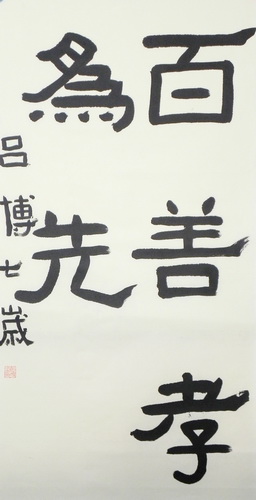 百善孝
為先
吕博七歲